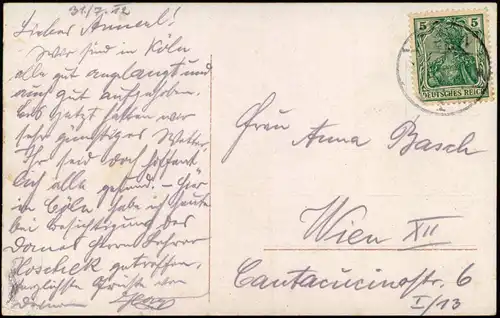 31/7. 12
Liebes Annerl!
Wir sind in Köln
alle gut angelangt und
auch gut aufgehoben.
Bis jetzt hatten wir
sehr günstiges Wetter.
Ihr seid doch hoffent
lich alle gesund. – Hier
in Cöln habe ich heute
bei Besichtigung des
Domes Herrn Lehrer
Hoschek getroffen.
Herzlichste Grüße von
deinem
5 5
DEUTSCHES REICH
Frau Anna Basch
Wien XII
Cantacucinostr. 6
I/13